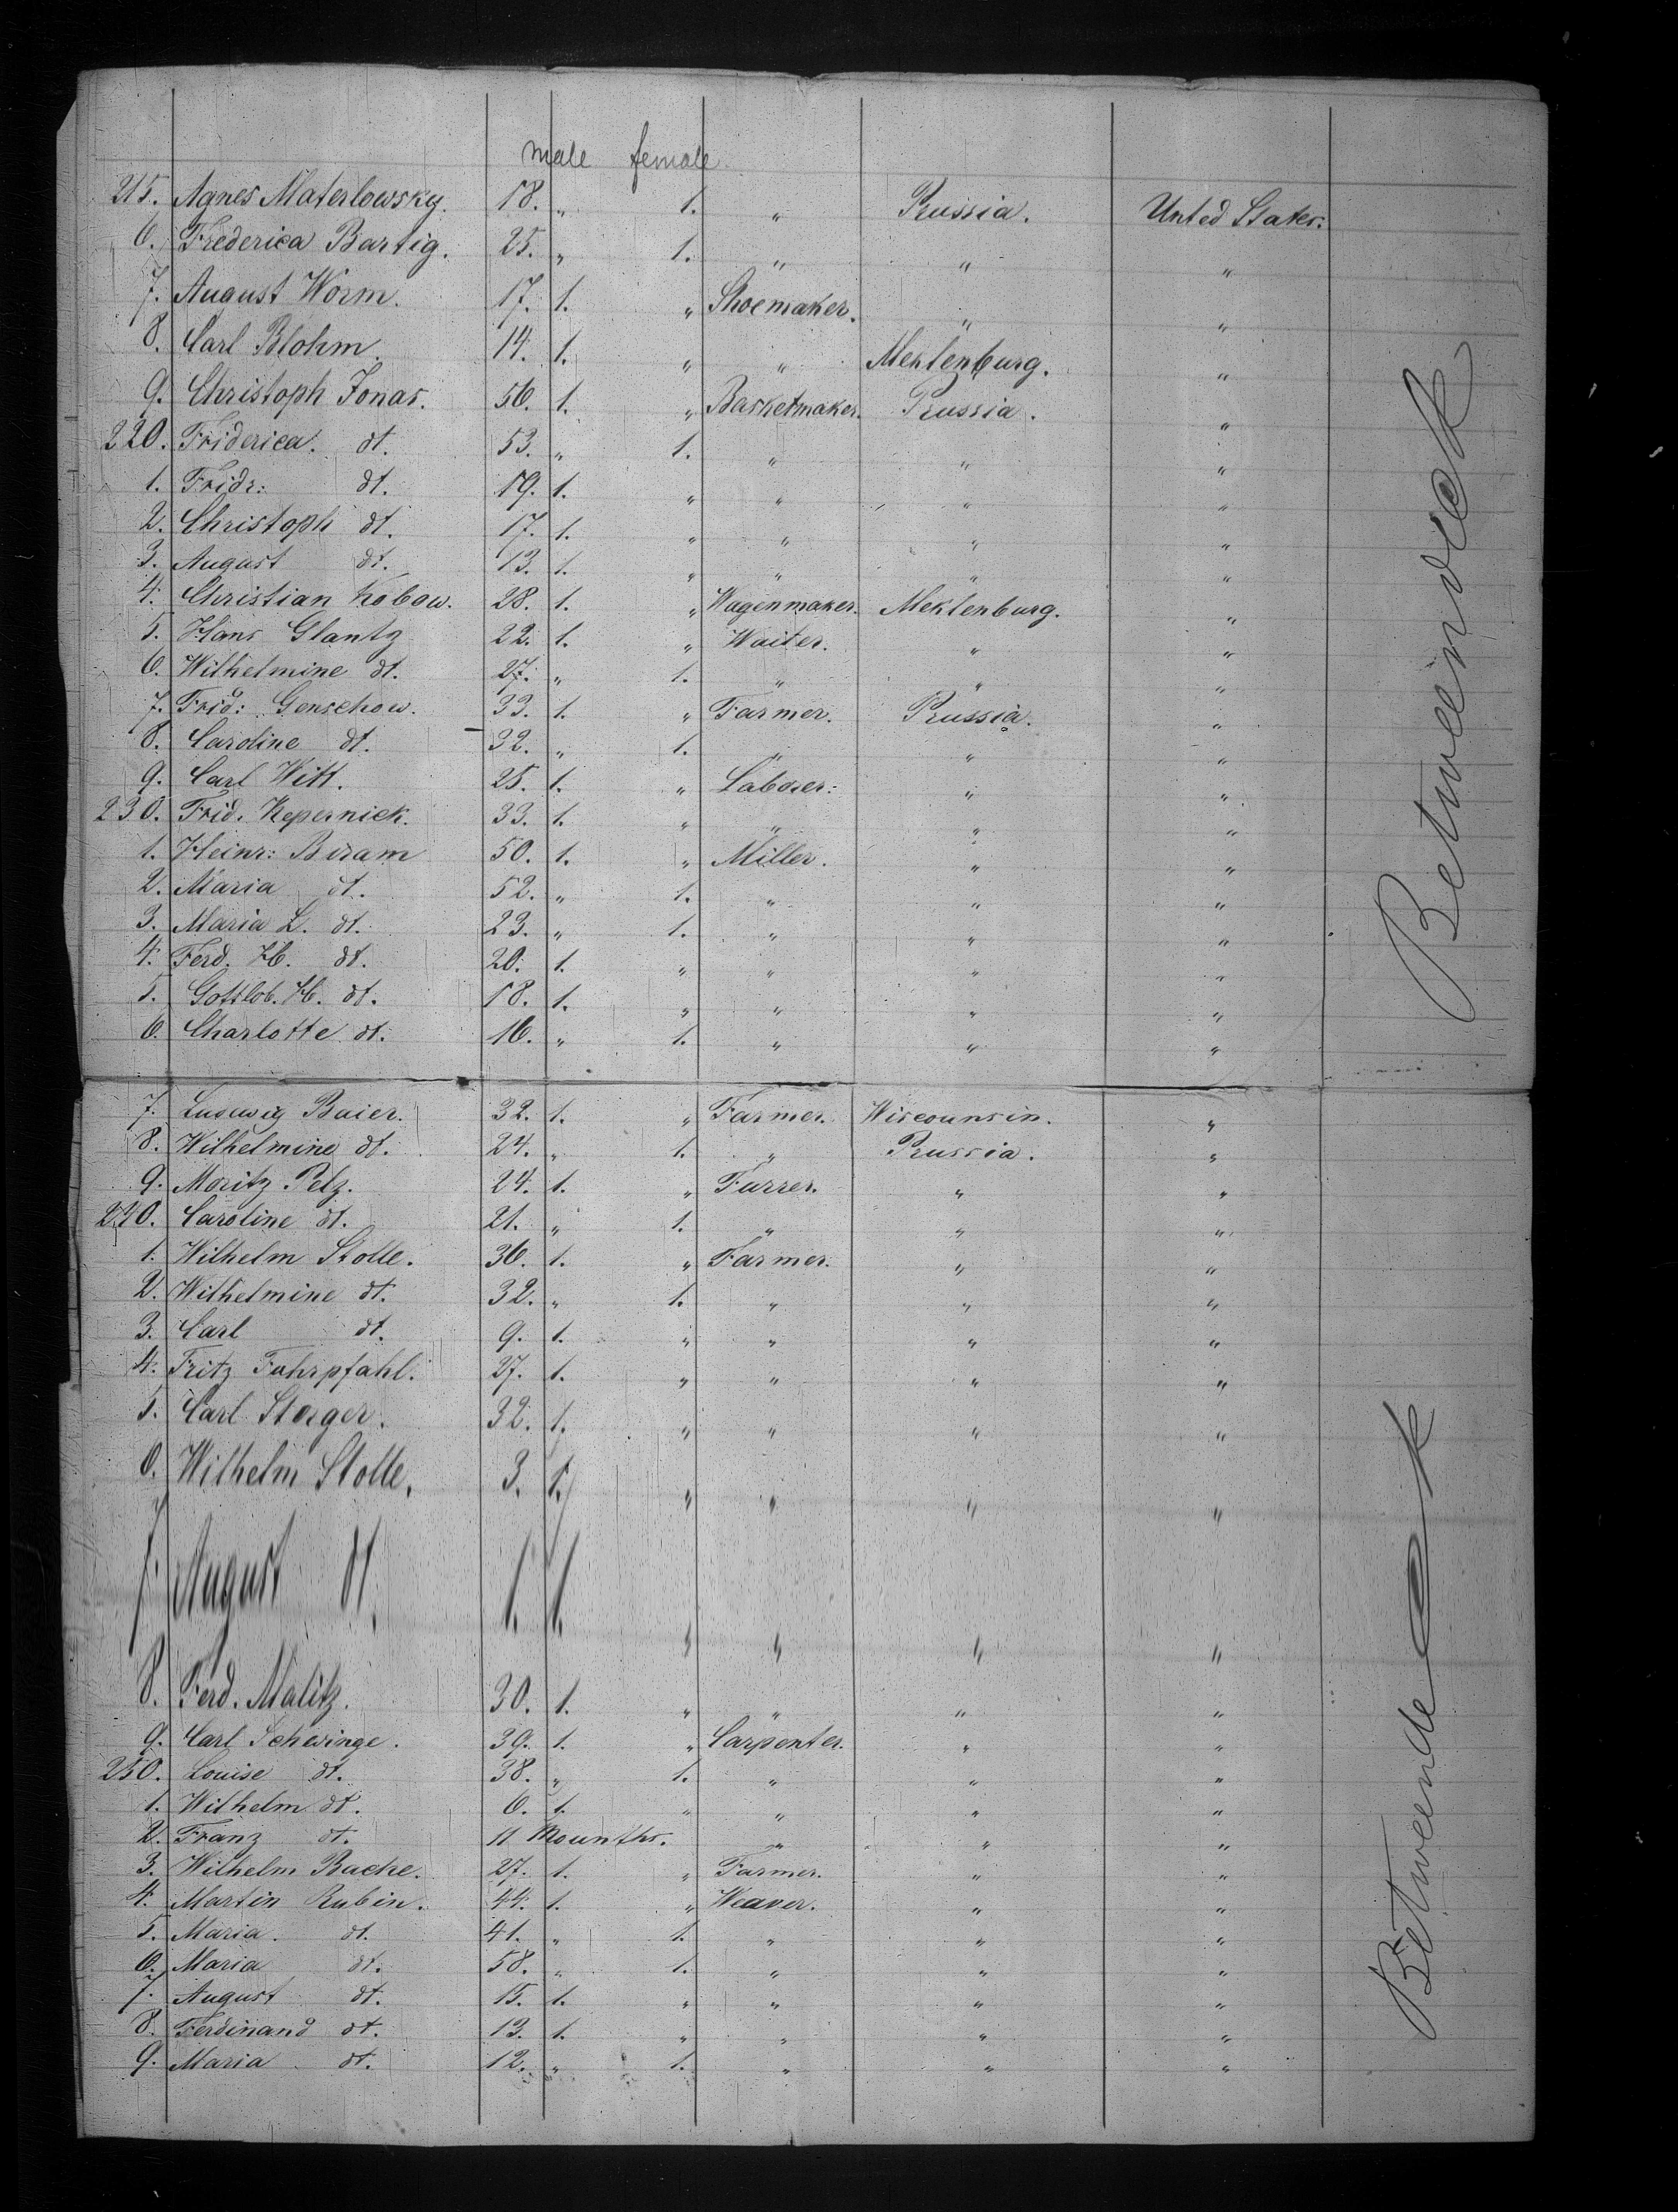 male female
215. Agnes Materlowsky. 18. " 1. " Prussia. Unted States.
6. Frederica Bartig. 25. " 1. " " "
7. August Worm. 17. 1. " Shoemaker. " "
8. Carl Blohm. 14. 1. " " Meklenburg. "
9. Christoph Jonas. 56. 1. " Basketmaker. Prussia. "
220. Friderica. dt. 53. " 1. " " "
1. Fridr: dt. 19. 1. " " " "
2. Christoph dt. 17. 1. " " " "
3. August dt. 13. 1. " " " "
4. Christian Kobow. 28. 1. " Wagenmaker. Meklenburg. "
5. Hans Glantz 22. 1. " Waiter. " "
6. Wilhelmine dt. 27. " 1. " " "
7. Frid: Genschow. 33. 1. " Farmer. Prussia. "
8. Caroline dt. 32. " 1. " " "
9. Carl Witt. 25. 1. " Laborer: " "
230. Frid. Kepernick. 33. 1. " " " "
1. Heinr: Beram 50. 1. " Miller. " "
2. Maria dt. 52. " 1. " " "
3. Maria L. dt. 23. " 1. " " "
4. Ferd. H. dt. 20. 1. " " " "
5. Gottlob. H. dt. 18. 1. " " " "
6. Charlotte dt. 16. " 1. " " "
7. Ludwig Baier. 32. 1. " Farmer. Wiscounsin. "
8. Wilhelmine dt. 24. " 1. " Prussia. "
9. Moritz Pelz. 24. 1. " Furrer. " "
240. Caroline dt. 21. " 1. " " "
1. Wilhelm Stolle. 36. 1. " Farmer. " "
2. Wilhelmine dt. 32. " 1. " " "
3. Carl dt. 9. 1. " " " "
4. Fritz Fuhrpfahl. 27. 1. " " " "
5. Carl Stoeger. 32. 1. " " " "
6. Wilhelm Stolle. 3. 1. " " " "
7. August dt. 1. 1. " " " "
8. Ferd. Malitz. 30. 1. " " " "
9. Carl Schwinge. 39. 1. " Carpenter. " "
250. Louise dt. 38. " 1. " " "
1. Wilhelm dt. 6. 1. " " " "
2. Franz dt. 11 Mounths. " " "
3. Wilhelm Bache. 27. 1. " Farmer. " "
4. Martin Rubin. 44. 1. " Weaver. " "
5. Maria. dt. 41. " 1. " " "
6. Maria dt. 58. " 1. " " "
7. August dt. 15. 1. " " " "
8. Ferdinand dt. 13. 1. " " " "
9. Maria dt. 12. " 1. " " "
Betweendeck
Betweendeck